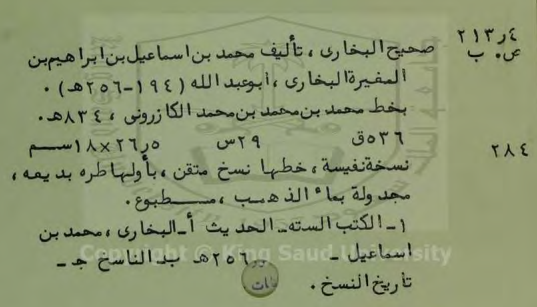 ٢١٣ر٤
ص٠ ب
صحيح البخارى ، تأليف محمد بن اسماعيل بن ابراهيم بن
المغيرة البخارى ، ابوعبد الله ( ١٩٤-٢٥٦هـ ) ٠
بخط محمد بن محمد بن محمد الكازرونى ، ٨٣٤هـ٠
٥٣٦ق ٢٩س ٥ر٢٦×١٨سم
٢٨٤
نسخة نفيسة ، خطها نسخ متقن ، بأولها طره بديعه ،
مجدولة بماء الذهب ، مطبوع ٠
١- الكتب السته- الحديث أ- البخارى ، محمد بن
اسماعيل - ٢٥٦هـ ب- الناسخ جـ -
تاريخ النسخ ٠
Copyright © King Saud University